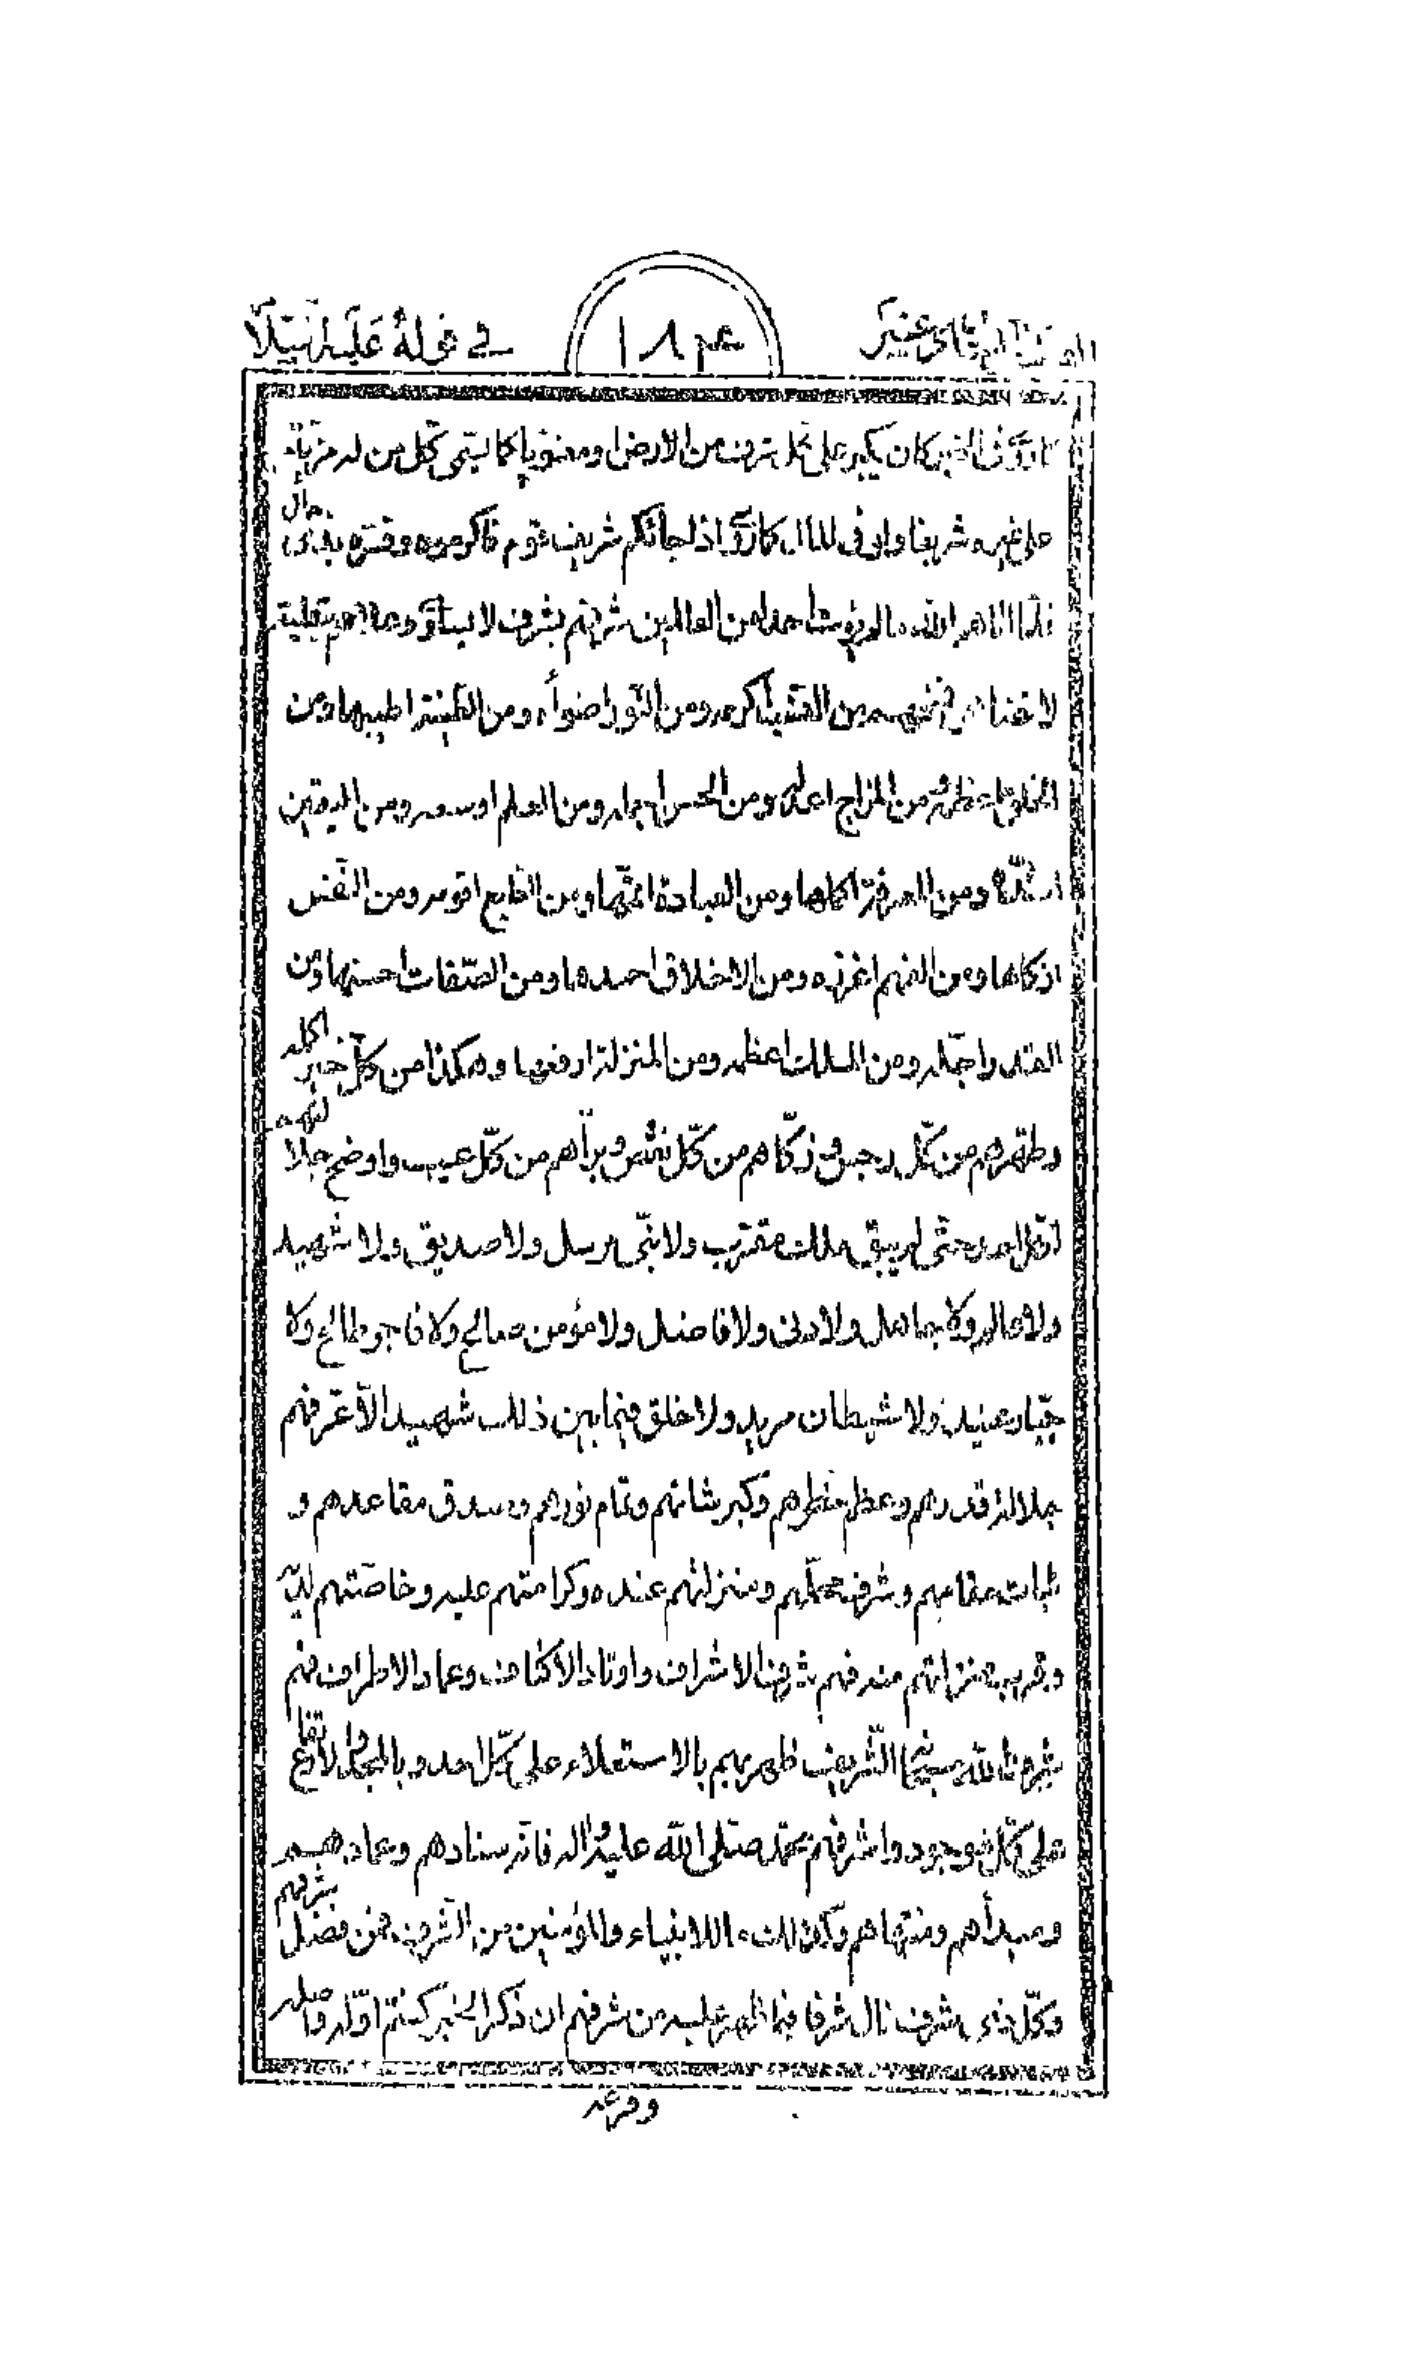 في قوله عليه السلام
كان يكبر على كل شرف من الارض او معنويا كما يسمى كل من له مزية
على غيره شريفا ولو في المال كما روى اذا جائكم شريف قوم فاكرموه وفسره بذى مال
فلما اتاهم الله ما لم يؤت احدا من العالمين شرفهم بشرف لا يساوى
من اكرمه ومن النور اضوأه ومن الطينة اطيبها ومن
ومن المزاج اعدله ومن الحسن ومن العلم اوسعه ومن اليقين
اشده ومن المعرفة اكملها ومن العبادة اتمها ومن الطبع اقومه ومن النفس
ازكاها ومن الفهم اغزره ومن الاخلاق احمدها ومن الصفات احسنها ومن
ومن الملك اعظمه ومن المنزلة ارفعها وهكذا من كل خير اكمله
وطهرهم من كل رجس وزكاهم من كل وبرأهم من كل عيب واوضح
احد حتى لم يبق ملك مقرب ولا نبى مرسل ولا صديق ولا شهيد
ولا عالم ولا جاهل ولا دنى ولا فاضل ولا مؤمن صالح ولا فاجر طالح ولا
جبار عنيد ولا شيطان مريد ولا خلق فيما بين ذلك شهيد الا عرفهم
جلالة قدرهم وعظم خطرهم وكبر شانهم وتمام نورهم وصدق مقاعدهم و
ثبات مقامهم وشرف محلهم ومنزلتهم عنده وكرامتهم عليه وخاصتهم لديه
وقرب منزلتهم منه فهم شرف الاشراف واوتاد الاكناف وعماد الاطراف فهم
الشريف ظهر بهم بالاستعلاء على كل احد وبالجملة الارتفاع
على كل موجود واشرفهم محمد صلى الله عليه واله فانه سنادهم وعمادهم
ومبدأهم ومنتهاهم وكذلك ما للانبياء والمؤمنين من الشرف فمن فضل شرفهم
وكل شرف نال شرفا فيما ظهر عليه من شرفهم ان ذكر الخير كنتم اوله واصله
وفرعه